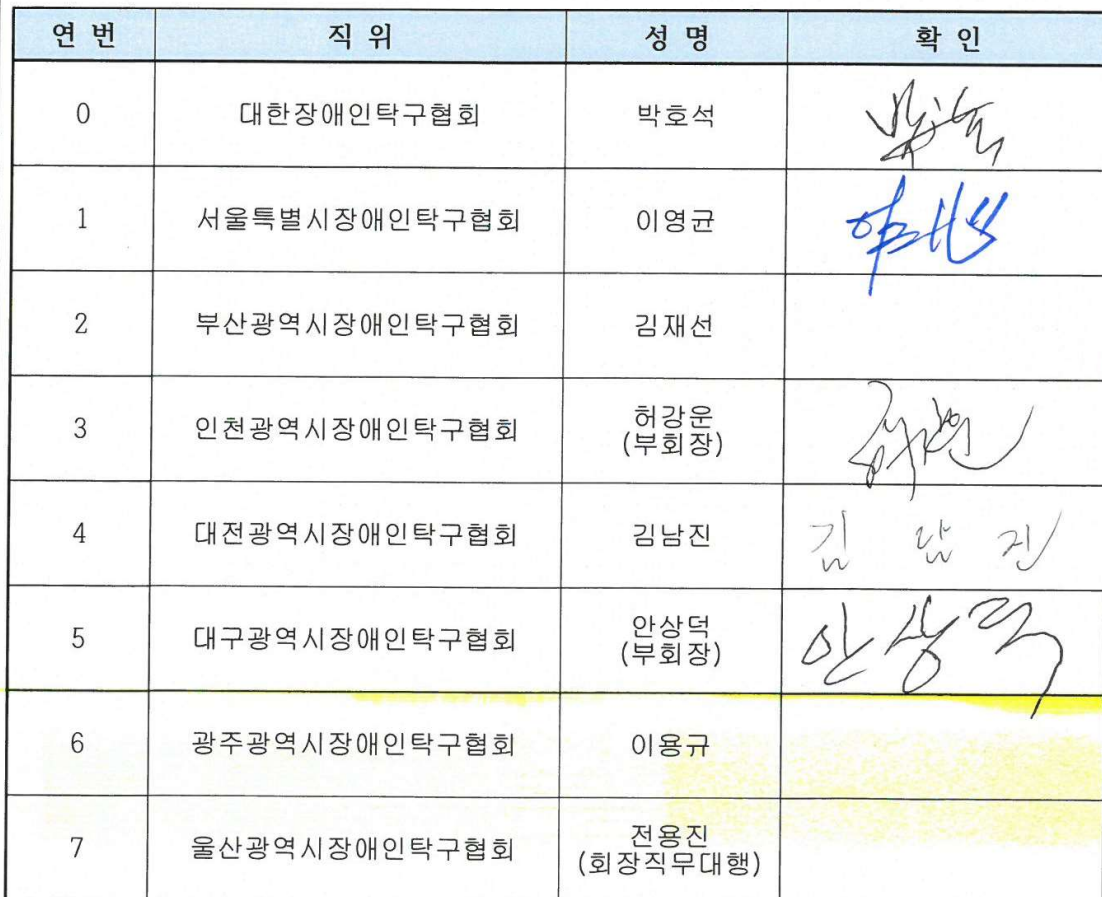 연 번 직 위 성 명 확 인
0 대한장애인탁구협회 박호석
1 서울특별시장애인탁구협회 이영균
2 부산광역시장애인탁구협회 김재선
3 인천광역시장애인탁구협회 허강운
(부회장)
4 대전광역시장애인탁구협회 김남진 김 남 진
5 대구광역시장애인탁구협회 안상덕 안 상 덕
(부회장)
6 광주광역시장애인탁구협회 이용규
7 울산광역시장애인탁구협회 전용진
(회장직무대행)